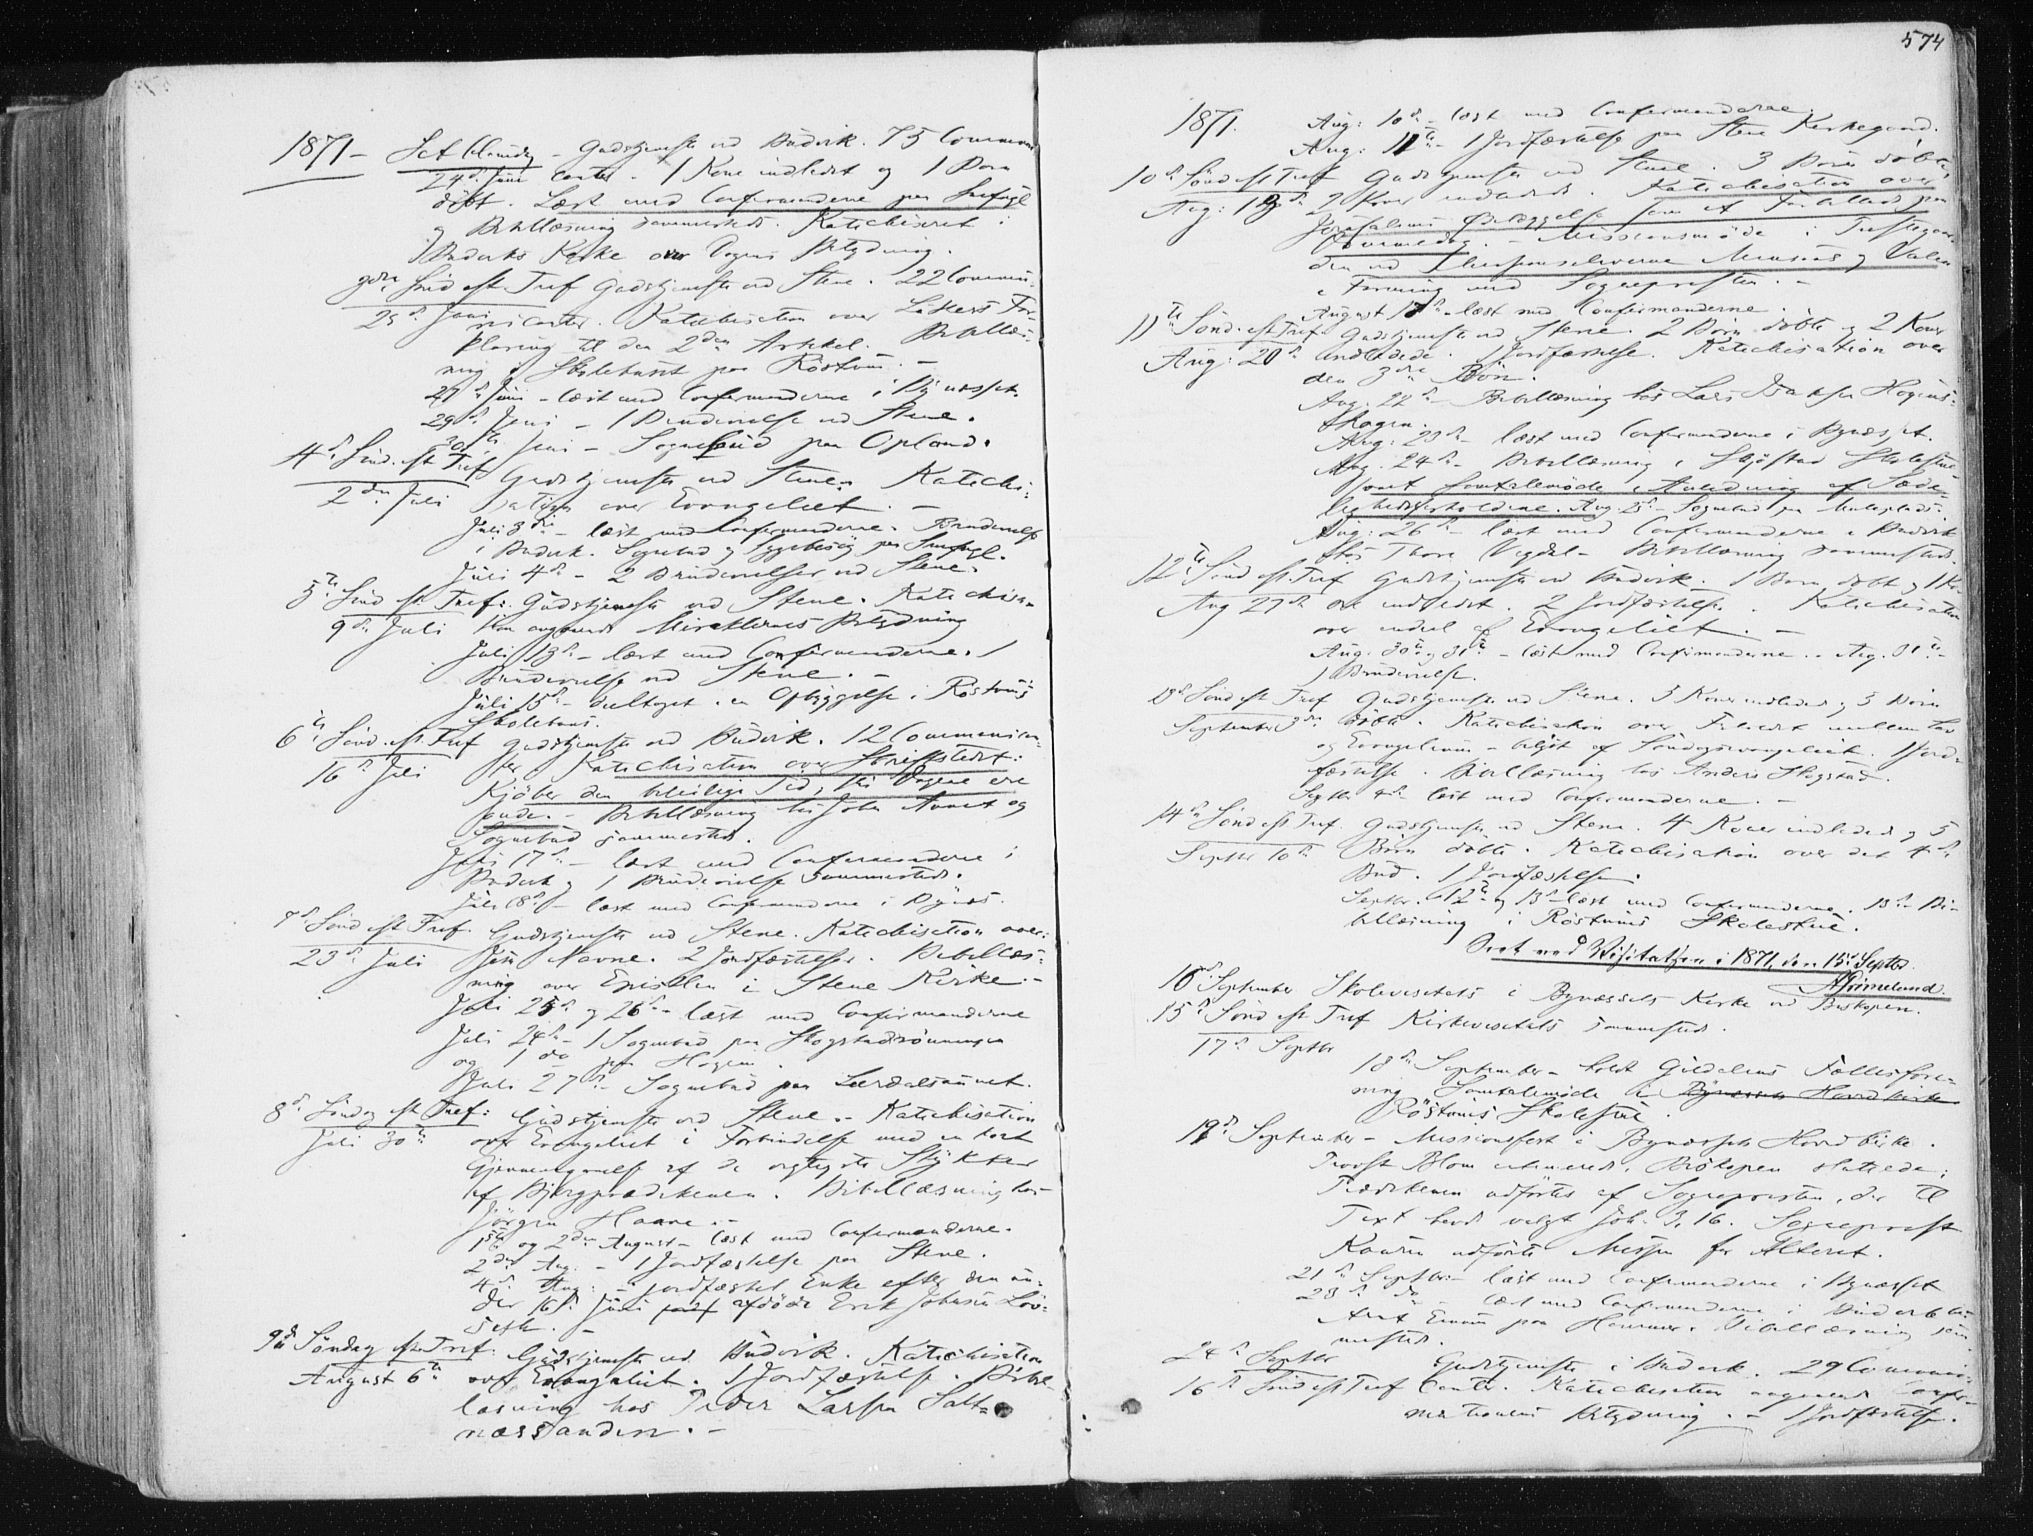 1871 – Sct Hansdag – Gudstjeneste ved Büdvik. 75 Communi-
24de Juni canter. 1 Kone indledet og 1 Barn
döbt. Læst med Confirmanderne paa
og Bibellæsning sammesteds. Katechiseret i
Budviks Kirke over Dagens Betydning.
3die Sönd. eft. Tref. Gudstjeneste ved Stene. 22 Communi-
25de Juni canter. Katechisation over Luthers For-
klaring til den 2den Artikel. Bibellæs-
ning i Skolehuset paa Röstum. –
27de Juni – læst med Confirmanderne i Bynæsset.
29de Juni – 1 Brudevielse ved Stene.
30te Juni – Sognebud paa Opland.
4de Sönd. eft. Tref. Gudstjeneste ved Stene. Katechi-
2den Juli sation over Evangeliet. –
Juli 3die – læst med Confirmanderne. Brudevielse
i Budvik. Sognebud og Sygebesög paa
Juli 4de – 2 Brudevielser ved Stene.
5te Sönd. eft. Tref. Gudstjeneste ved Stene. Katechisa-
9de Juli tion angaaende Miraklernes Betydning
Juli 13de – læst med Confirmanderne. 1
Brudevielse ved Stene. –
Juli 15de – deeltaget i en Opbyggelse i Röstums
Skolehuus.
6te Sönd. eft. Tref. Gudstjeneste ved Büdvik. 12 Communican-
16de Juli ter. Katechisation over Skriftstedet:
Kjöber den beleilige Tid, thi Dagene ere
onde. – Bibellæsning hos John Aunet og
Sognebud sammesteds.
Juli 17de – læst med Confirmanderne i
Budvik og 1 Brudevielse sammesteds.
Juli 18de – læst med Confirmanderne i Bynæs.
7de Sönd. eft. Tref. Gudstjeneste ved Stene. Katechisation over:
23de Juli Jesu Navne. 2 Jordfæstelser. Bibellæs-
ning over Epistlen i Stene Kirke. –
Juli 25de og 26de – læst med Confirmanderne
Juli 24de – 1 Sognebud paa Skogstadrönningen
og 1 do paa Högem.
Juli 27de – Sognebud paa
8de Söndag eft. Tref. Gudstjeneste ved Stene. – Katechisation
Juli 30te over Evangeliet i Forbindelse med en kort
Gjennemgaaelse af de vigtigste Stykker
af Bjergprædikenen. Bibellæsning hos
Jörgen Haare. –
1ste og 2den August – læst med Confirmanderne.
2den Aug. – 1 Jordfæstelse paa Stene.
4de Aug. – jordfæstet Enke efter den un-
der 16de Juni afdöde Erik Johnsen Löv-
seth. –
9de Söndag eft. Tref. Gudstjeneste ved Büdvik. Katechisation
August 6te over Evangeliet. 1 Jordfæstelse. Bibel-
læsning hos Peder Larsen Salt-
næssanden. –
574
1871. Aug. 10de – læst med Confirmanderne.
Aug. 11te – 1 Jordfæstelse paa Stene Kirkegaard.
10de Sönd. eft. Tref. Gudstjeneste ved Stene. 3 Börn döbte,
Aug. 13de 2 Koner indledede. Katechisation over
Jerusalems Ödelæggelse som et Forbillede paa
Dommedag. – Missionsmöde i Præstegaar-
den ved og
i Forening med Sognepresten. –
August 17de – læst med Confirmanderne.
11te Sönd. eft. Tref. Gudstjeneste ved Stene. 2 Börn döbte og 2 Koner
Aug. 20de indledede. 1 Jordfæstelse. Katechisation over
den 3die Bön.
Aug. 22de – Bibellæsning hos Lars
Aug. 23de – læst med Confirmanderne i Bynæsset.
Aug. 24de – Bibellæsning i Skjöstad Skolestue
samt Samtalemöde i Anledning af Sæde-
lighedsforholdene. Aug. 25de – Sognebud paa
Aug. 26de – læst med Confirmanderne i Budvik
hos Thore Vigdal – Bibellæsning sammesteds.
12te Sönd. eft. Tref. Gudstjeneste ved Budvik. 1 Barn döbt og 1 Ko-
Aug 27de ne indledet. 2 Jordfæstelser. Katechisation
over endeel af Evangeliet. –
Aug. 30te og 31te – læst med Confirmanderne. – Aug. 31te –
1 Brudevielse.
13de Sönd. eft. Tref. Gudstjeneste ved Stene. 3 Koner indledede og 3 Börn
September 3die döbte. Katechisation over Forskjel mellem Lov
og Evangelium – belyst af Söndagsevangeliet. 1 Jord-
fæstelse. Bibellæsning hos Anders Skogstad.
Septbr 4de læst med Confirmanderne. –
14de Sönd. eft. Tref. Gudstjeneste ved Stene. 4 Koner indledede og 5
Septbr 10de Börn döbte. Katechisation over det 4de
Bud. 1 Jordfæstelse.
Septbr. 12te og 13de læst med Confirmanderne. 13de – Bi-
bellæsning i Röstums Skolestue.
Seet ved Visitatsen i 1871, den 15de Septbr.
AGrimelund.
16de September Skolevisitats i Bynæssets Kirke ved Biskopen.
15de Sönd. eft. Tref. Kirkevisitats sammesteds.
17de Septbr
18de September – holdt Guldalens Fællesfore-
ning Samtalemöde i Bynæssets Hovedkirke
Röstums Skolestue.
19de September – Missionsfest i Bynæssets Hovedkirke.
Provst Blom Biskopen sluttede;
Prædikenen udförtes af Sognepresten, der til
Text havde valgt Joh. 3, 16. Sogneprest
Kaurin udförte Messen for Alteret.
21de Septbr. – læst med Confirmanderne i Bynæsset
23de do – læst med Confirmanderne i Budvik
paa Hammer. Bibellæsning sam-
mesteds.
24de Septbr Gudstjeneste i Budvik. 29 Communi-
16de Sönd. eft. Tref. canter. Katechisation angaaende Confir-
mationens Betydning. – 1 Jordfæstelse.